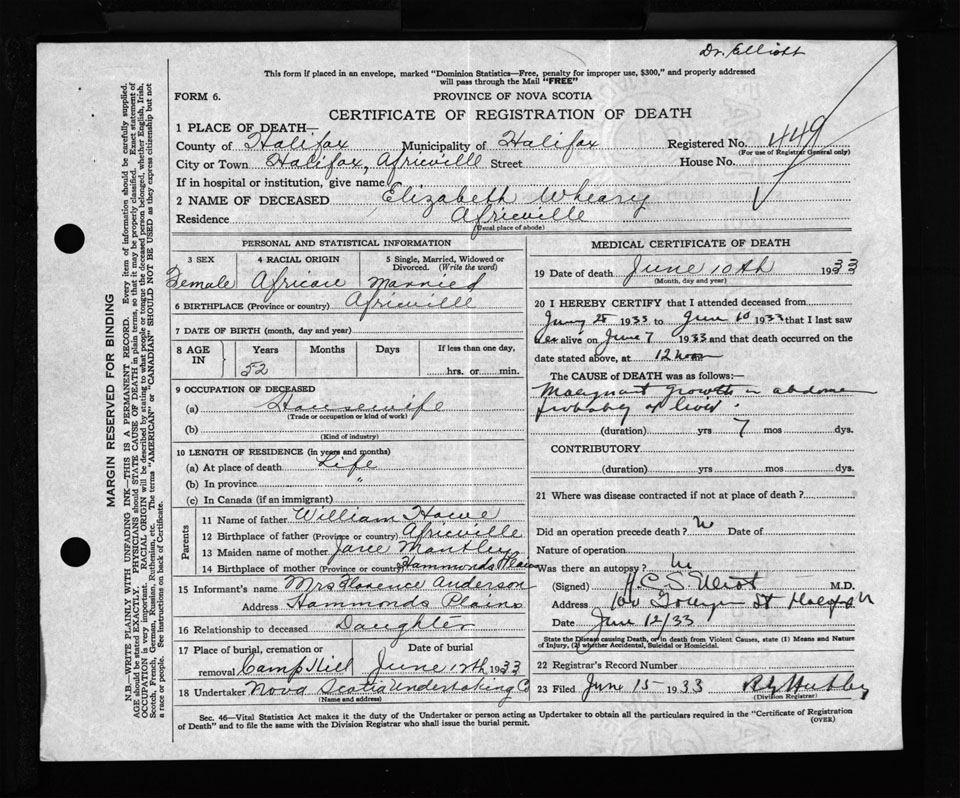 Dr. Elliott
This form if placed in an envelope, marked "Dominion Statistics—Free, penalty for improper use, $300," and properly addressed
will pass through the Mail "FREE"
FORM 6.
PROVINCE OF NOVA SCOTIA
CERTIFICATE OF REGISTRATION OF DEATH
1 PLACE OF DEATH—
County of Halifax Municipality of Halifax Registered No. 449
(For use of Registrar General only)
City or Town Halifax, Africville Street House No.
If in hospital or institution, give name
2 NAME OF DECEASED Elizabeth Wheary
Residence Africville
(Usual place of abode)
PERSONAL AND STATISTICAL INFORMATION
3 SEX 4 RACIAL ORIGIN 5 Single, Married, Widowed or Divorced. (Write the word)
Female African Married
6 BIRTHPLACE (Province or country) Africville
7 DATE OF BIRTH (month, day and year)
8 AGE IN Years Months Days If less than one day,
52 hrs. or min.
9 OCCUPATION OF DECEASED
(a) Housewife
(Trade or occupation or kind of work)
(b)
(Kind of industry)
10 LENGTH OF RESIDENCE (in years and months)
(a) At place of death Life
(b) In province "
(c) In Canada (if an immigrant)
Parents
11 Name of father William Howe
12 Birthplace of father (Province or country) Africville
13 Maiden name of mother Jane Mantley
14 Birthplace of mother (Province or country) Hammonds Plains
15 Informant's name Mrs Florence Anderson
Address Hammonds Plains
16 Relationship to deceased Daughter
17 Place of burial, cremation or removal Date of burial
Camp Hill June 12th 1933
18 Undertaker Nova Scotia Undertaking Co
(Name and address)
MEDICAL CERTIFICATE OF DEATH
19 Date of death June 10th 1933
(Month, day and year)
20 I HEREBY CERTIFY that I attended deceased from
28 1933 to June 10 1933 that I last saw
her alive on June 7 1933 and that death occurred on the
date stated above, at 12 noon
The CAUSE of DEATH was as follows:—
Malignant growth in abdomen
probably of liver.
(duration) yrs 7 mos dys.
CONTRIBUTORY
(duration) yrs. mos. dys.
21 Where was disease contracted if not at place of death?
Did an operation precede death? No Date of
Nature of operation
Was there an autopsy? No
(Signed) M.D.
Address St Halifax
Date June 12/33
State the Disease causing Death, or in death from Violent Causes, state (1) Means and Nature of Injury, (2) whether Accidental, Suicidal or Homicidal.
22 Registrar's Record Number
23 Filed June 15 1933
(Division Registrar)
Sec. 46—Vital Statistics Act makes it the duty of the Undertaker or person acting as Undertaker to obtain all the particulars required in the "Certificate of Registration
of Death" and to file the same with the Division Registrar who shall issue the burial permit.
(OVER)
MARGIN RESERVED FOR BINDING
N.B.—WRITE PLAINLY WITH UNFADING INK—THIS IS A PERMANENT RECORD. Every item of information should be carefully supplied.
AGE should be stated EXACTLY. PHYSICIANS should STATE CAUSE OF DEATH in plain terms, so that it may be properly classified. Exact statement of
OCCUPATION is very important. RACIAL ORIGIN will be described by stating to what people or tongue the deceased person belonged, whether English, Irish,
Scotch, French, German, Russian, Ruthenian, etc. The terms "AMERICAN" or "CANADIAN" SHOULD NOT BE USED as they express citizenship but not
a race or people. See instructions on back of Certificate.